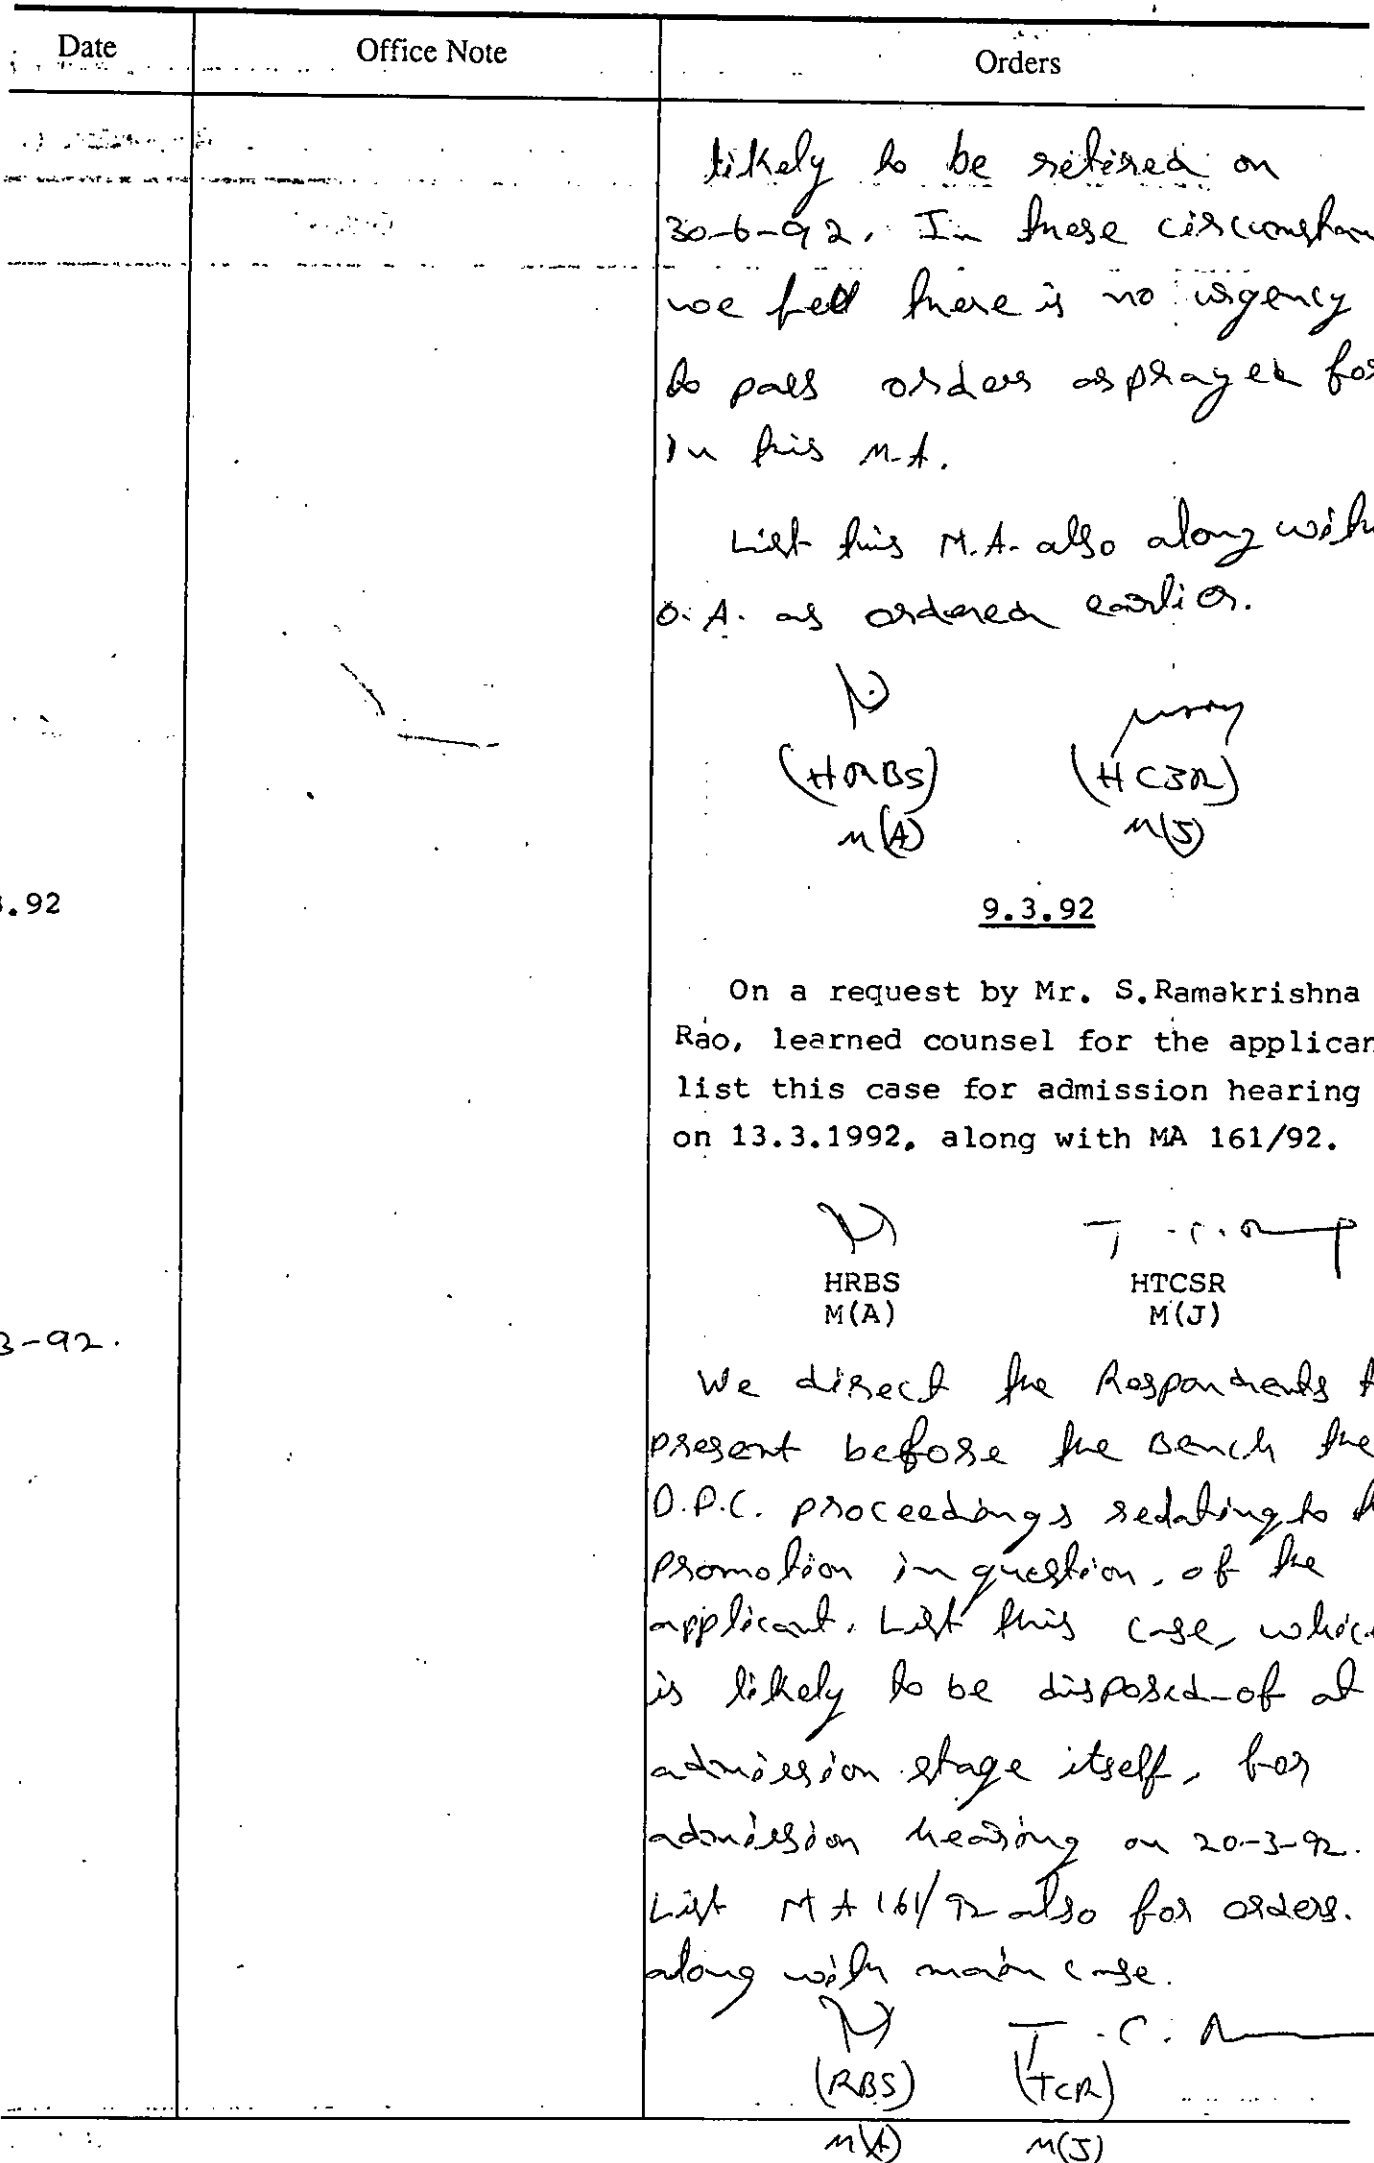 Date Office Note Orders
likely to be retired on
30-6-92. In these circumstan
we fell there is no urgency
to pass orders as prayed for
In this M.A.
List this M.A. also along with
O.A. as ordered earlier.
(HRBS) (HCJR)
M(A) M(J)
.92 9.3.92
On a request by Mr. S.Ramakrishna
Rao, learned counsel for the applican
list this case for admission hearing
on 13.3.1992, along with MA 161/92.
HRBS HTCSR
M(A) M(J)
3-92.
We direct the Respondents t
present before the Bench the
D.P.C. proceedings relating to th
promotion in question, of the
applicant. List this case, which
is likely to be disposed-of at
admission stage itself, for
admission hearing on 20-3-92.
List MA 161/92 also for orders.
along with main case.
T.C.R
(RBS) (TCR)
M(A) M(J)